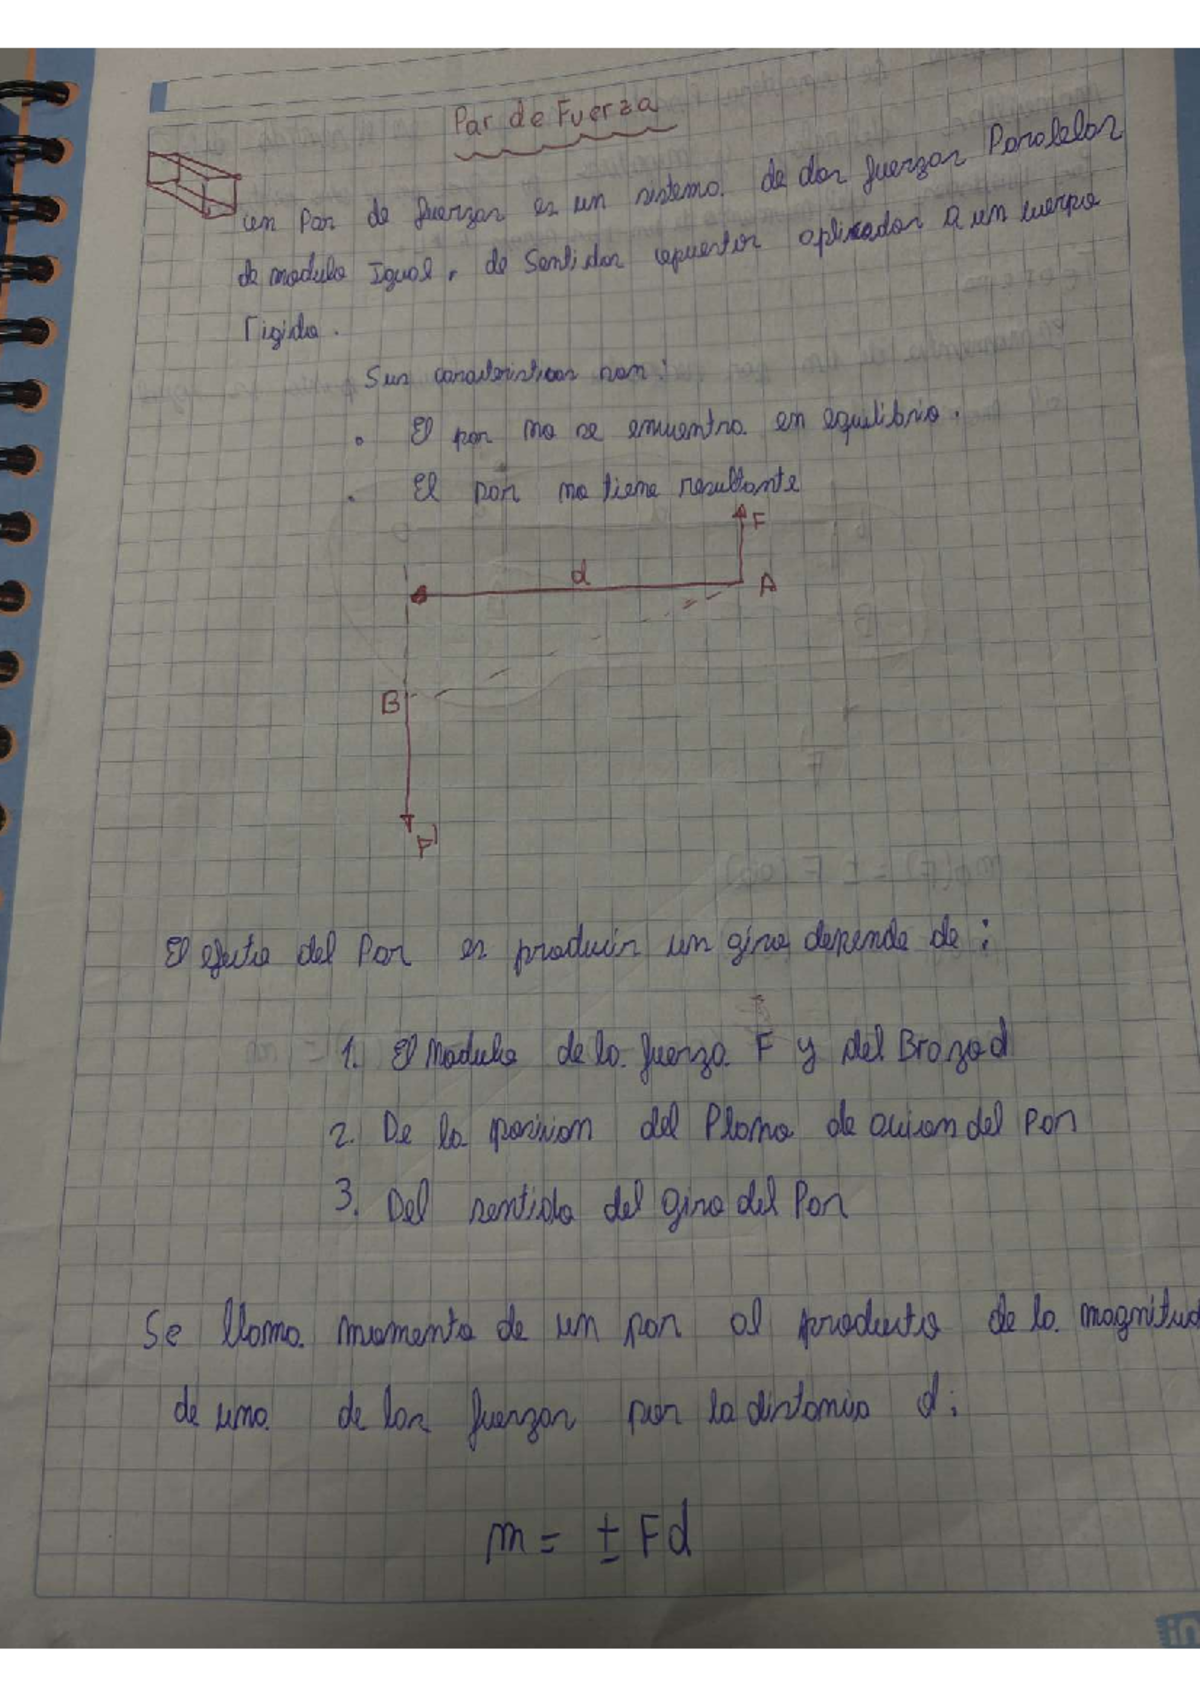 Par de Fuerza
un Par de fuerzas es un sistema de dos fuerzas Paralelas
de modulo Igual, de Sentidos opuestos aplicados a un cuerpo
rigido.
Sus caracteristicas son:
El par no se encuentra en equilibrio.
El par no tiene resultante
F
d
A
B
F'
El efecto del Par es producir un giro, depende de:
1. El Modulo de la fuerza F y del Brazo d
2. De la posicion del Plano de accion del Par
3. Del sentido del giro del Par
Se llama momento de un par al producto de la magnitud
de una de las fuerzas por la distancia d:
m = ± Fd